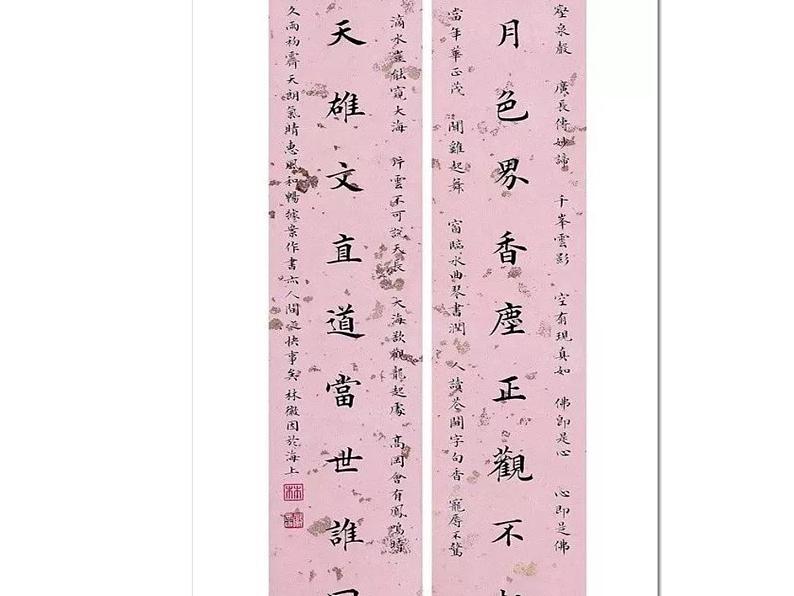 壑泉聲 廣長傳妙諦 千峯雲影 空有現真如 佛即是心 心即是佛
月色界香塵正觀不
當年華正茂 聞雞起舞 窗臨水曲琴書潤 人讀花間字句香 寵辱不驚
滴水豈能窺大海 片雲不可說天長 大海欲觀龍起處 高岡會有鳳鳴時
天雄文直道當世誰
久雨初霽天朗氣晴惠風和暢據案作書亦人間之快事矣 林徽因於海上